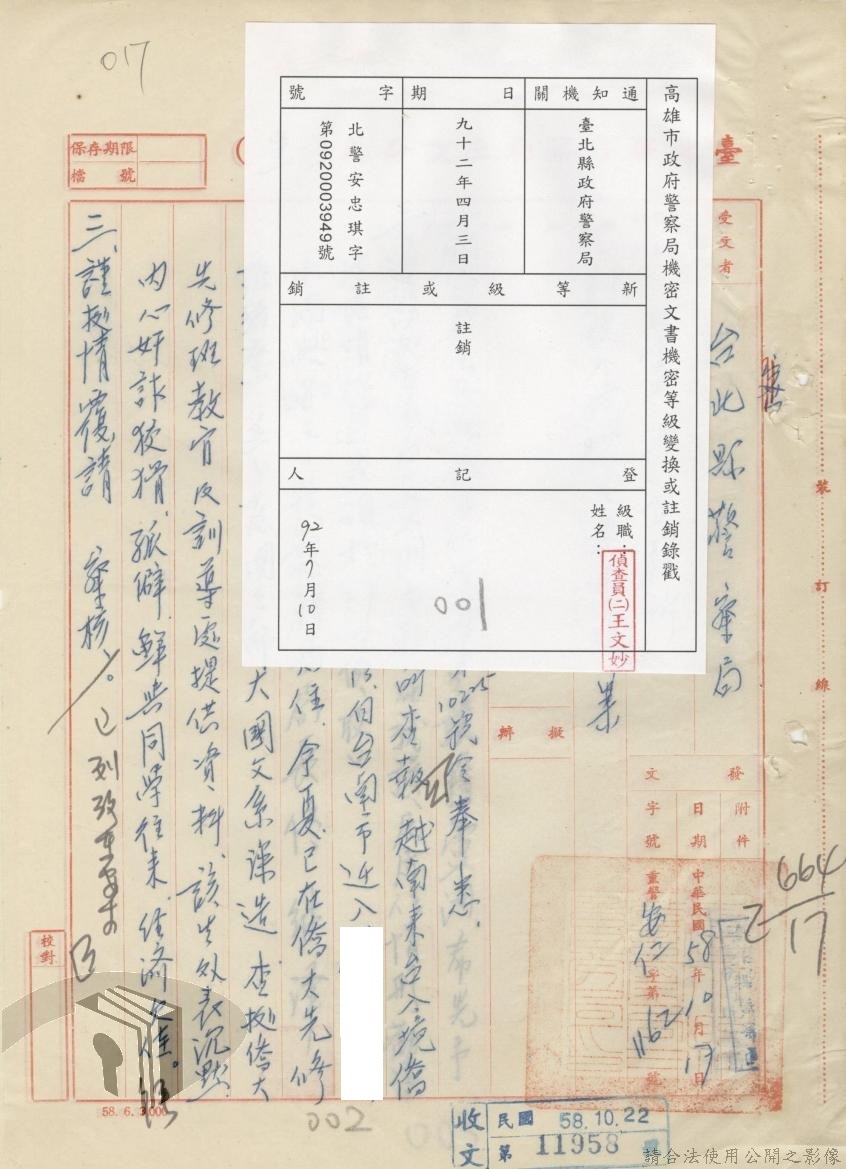 017
臺
保存期限
檔號
受文者
台北縣警察局
高雄市政府警察局機密文書機密等級變換或註銷錄戳
通知機關
臺北縣政府警察局
日期
九十二年四月三日
字號
北警安忠琪字
第0920003949號
新等級或註銷
註銷
登記人
級職:
姓名:
偵查員(二)王文妙
92年7月10日
001
裝訂線
附件
發文
日期
字號
中華民國58年10月17日
重警安仁字第1162號
擬辦
664
17
1025號令奉悉
查報越南來台入境僑
台南市近入
住,今夏已在僑大先修
大國文系深造,查據僑大
先修班教官及訓導處提供資料,該生外表沉默
內心奸詐狡猾,孤僻,鮮與同學往來,經濟欠佳。
三、謹據情覆請 察核。
校對
58. 6. 3,000
002
收文
民國 58.10.22
第 11958 號
請合法使用公開之影像